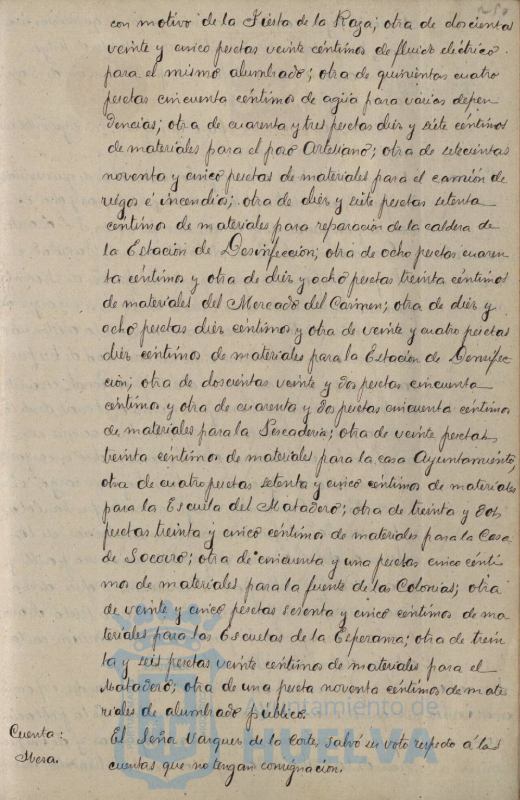 con motivo de la Fiesta de la Raza; otra de doscientas
veinte y cinco pesetas veinte céntimos de fluido eléctrico
para el mismo alumbrado; otra de quinientas cuatro
pesetas cincuenta céntimos de agua para varias depen
dencias; otra de cuarenta y tres pesetas diez y siete céntimos
de materiales para el pozo Artesiano; otra de setecientas
noventa y cinco pesetas de materiales para el camión de
riegos é incendios; otra de diez y siete pesetas setenta
céntimos de materiales para reparación de la caldera de
la Estación de Desinfección; otra de ocho pesetas cuaren
ta céntimos y otra de diez y ocho pesetas treinta céntimos
de materiales del Mercado del Carmen; otra de diez y
ocho pesetas diez céntimos y otra de veinte y cuatro pesetas
diez céntimos de materiales para la Estación de Desinfec
ción; otra de doscientas veinte y dos pesetas cincuenta
céntimos y otra de cuarenta y dos pesetas cincuenta céntimos
de materiales para la Pescadería; otra de veinte pesetas
treinta céntimos de materiales para la casa Ayuntamiento;
otra de cuatro pesetas setenta y cinco céntimos de materiales
para la Escuela del Matadero; otra de treinta y dos
pesetas treinta y cinco céntimos de materiales para la Casa
de Socorro; otra de cincuenta y una pesetas cinco cénti
mos de materiales para la fuente de las Colonias; otra
de veinte y cinco pesetas sesenta y cinco céntimos de ma
teriales para las Escuelas de la Esperanza; otra de trein
ta y seis pesetas veinte céntimos de materiales para el
Matadero; otra de una peseta noventa céntimos de mate
riales de alumbrado público.
Cuenta:
El Señor Vázquez de la Corte, salvó su voto respecto á las
cuentas que no tengan consignación.
Ayuntamiento de
HUELVA